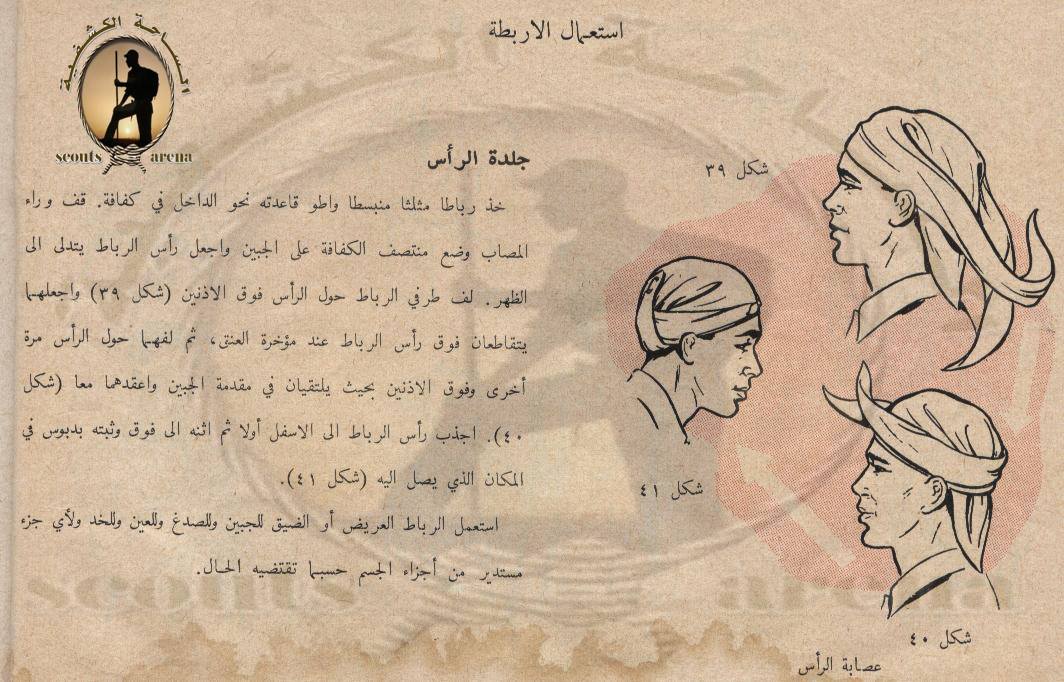 استعمال الاربطة
الساحة الكشفية
scouts arena
جلدة الرأس
خذ رباطا مثلثا منبسطا واطو قاعدته نحو الداخل في كفافة. قف وراء
المصاب وضع منتصف الكفافة على الجبين واجعل رأس الرباط يتدلى الى
الظهر. لف طرفي الرباط حول الرأس فوق الاذنين (شكل ٣٩) واجعلهما
يتقاطعان فوق رأس الرباط عند مؤخرة العنق، ثم لفهما حول الرأس مرة
أخرى وفوق الاذنين بحيث يلتقيان في مقدمة الجبين واعقدهما معا (شكل
٤٠). اجذب رأس الرباط الى الاسفل أولا ثم اثنه الى فوق وثبته بدبوس في
المكان الذي يصل اليه (شكل ٤١).
استعمل الرباط العريض أو الضيق للجبين وللصدغ وللعين وللخد ولأي جزء
مستدير من أجزاء الجسم حسبما تقتضيه الحال.
شكل ٣٩
شكل ٤١
شكل ٤٠
عصابة الرأس
الساحة الكشفية
scouts arena